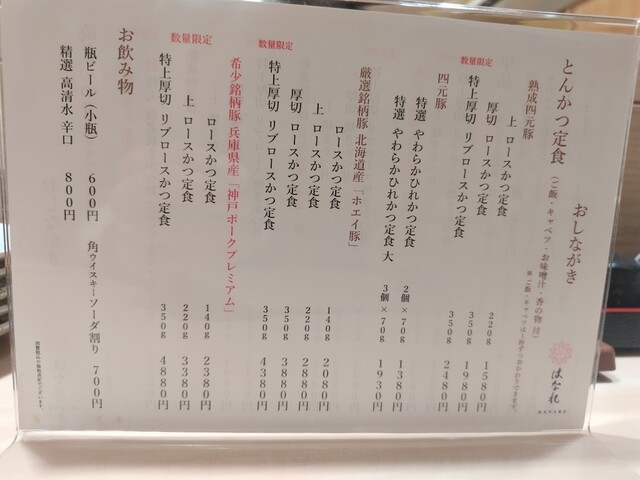 おしながき
はなれ
HANARE
とんかつ定食 (ご飯・キャベツ・お味噌汁・香の物 付)
※ご飯・キャベツは1杯ずつおかわりできます。
熟成四元豚
上 ロースかつ定食 220g 1580円
厚切 ロースかつ定食 350g 1980円
数量限定
特上厚切 リブロースかつ定食 350g 2480円
四元豚
特選 やわらかひれかつ定食 2個×70g 1380円
特選 やわらかひれかつ定食 大 3個×70g 1930円
厳選銘柄豚 北海道産「ホエイ豚」
ロースかつ定食 140g 2080円
上 ロースかつ定食 220g 2880円
厚切 ロースかつ定食 350g 3880円
数量限定
特上厚切 リブロースかつ定食 350g 4380円
希少銘柄豚 兵庫県産「神戸ポークプレミアム」
ロースかつ定食 140g 2380円
上 ロースかつ定食 220g 3380円
数量限定
特上厚切 リブロースかつ定食 350g 4880円
お飲み物
瓶ビール(小瓶) 600円 角ウィスキーソーダ割り 700円
精選 高清水 辛口 800円